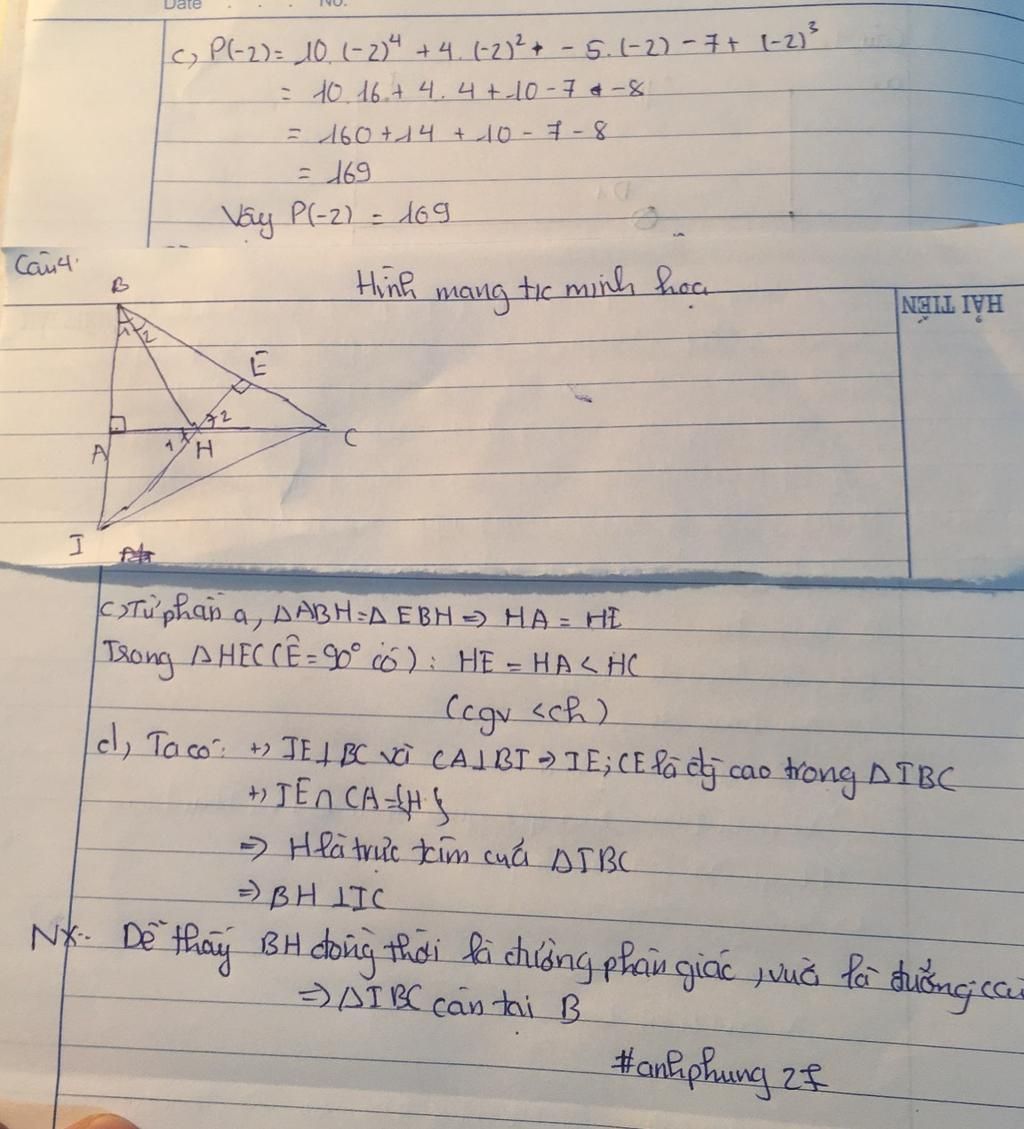 Date . . . No.
c, P(-2) = 10.(-2)⁴ + 4.(-2)² + - 5.(-2) - 7 + (-2)³
= 10.16 + 4.4 + 10 - 7 + -8
= 160 + 14 + 10 - 7 - 8
= 169
Vậy P(-2) = 169
Câu 4.
Hình mang t/c minh họa
HẢI TIẾN
B
1 2
E
A
1 H 2
C
I
c, Từ phần a, ΔABH = ΔEBH => HA = HE
Trong ΔHEC (Ê = 90° có): HE = HA < HC
(cgv < ch)
d, Ta có: +, IE⊥BC và CA⊥BI => IE; CE là đg cao trong ΔIBC
+, IE ∩ CA = {H}
=> H là trực tâm của ΔIBC
=> BH ⊥ IC
NX: Dễ thấy BH đồng thời là đường phân giác, vừa là đường ca
=> ΔIBC cân tại B
#anhphung2f